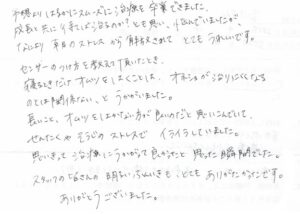 予想よりはるかにスムーズに治療を卒業できました。
成長と共に待てば治るのか?とも思い、悩んでいましたが、
なにより 毎日のストレスから解放されて とてもうれしいです。
センサーのつけ方を教えて頂いたとき、
寝るときだけオムツをはくことは、オネショが治りにくくなる
のとは関係ない、とうかがいました。
長いこと、オムツをはかない方が良いのだと思いこんでいて、
せんたくやそうじのストレスでイライラしていました。
思いきって治療にうかがって良かったと思った瞬間でした。
スタッフの皆さんの明るいふんいきも、とてもありがたかったです。
ありがとうございました。